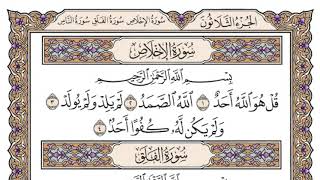 الجزء الثلاثون سورة الإخلاص سورة الفلق سورة الناس
سُورَةُ الإِخْلَاصِ
بِسْمِ اللَّهِ الرَّحْمَٰنِ الرَّحِيمِ
قُلْ هُوَ اللَّهُ أَحَدٌ ١ اللَّهُ الصَّمَدُ ٢ لَمْ يَلِدْ وَلَمْ يُولَدْ ٣
وَلَمْ يَكُن لَّهُ كُفُوًا أَحَدٌ ٤
سُورَةُ الْفَلَقِ